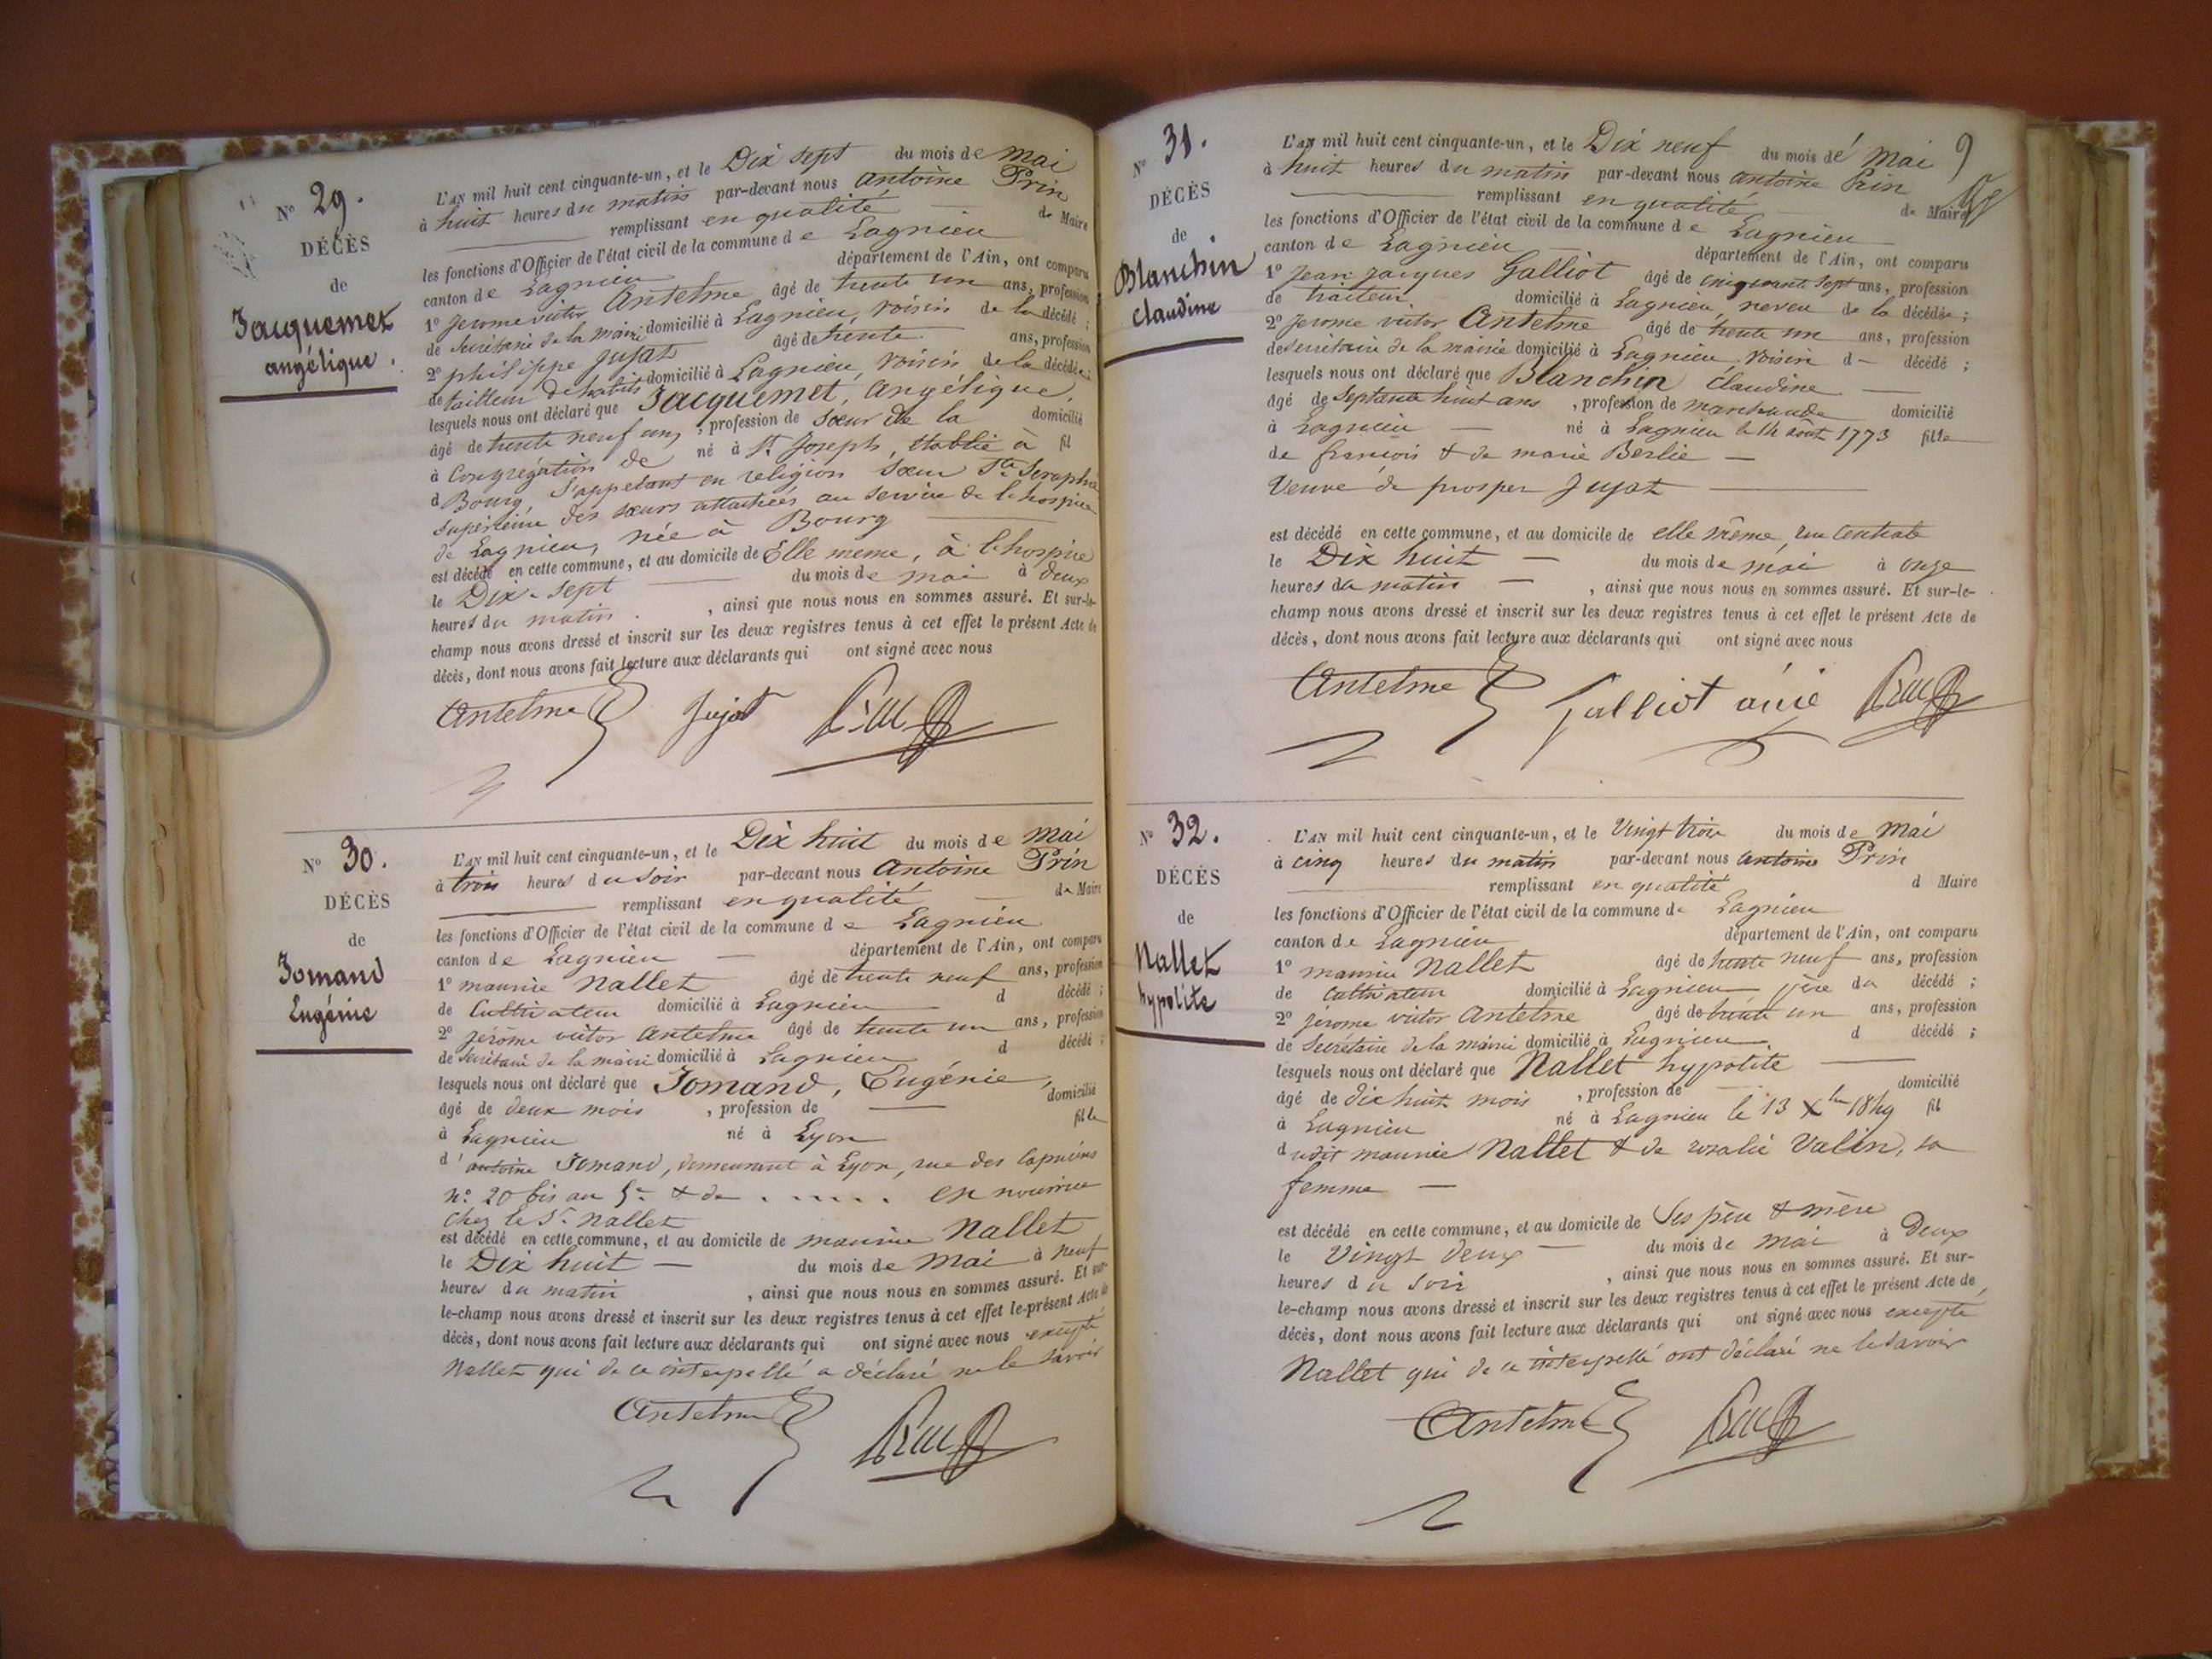 N° 29.
DÉCÈS
de
Jacquemet
angélique.
L'AN mil huit cent cinquante-un, et le Dix sept du mois de Mai
à huit heures du matin par-devant nous Antoine Prin
remplissant en qualité de Maire
les fonctions d'Officier de l'état civil de la commune de Lagnieu
canton de Lagnieu département de l'Ain, ont comparu
1° Jerome victor Antelme âgé de trente un ans, profession
de Secrétaire de la mairie domicilié à Lagnieu, voisin de la décédé ;
2° philippe Jujat âgé de trente ans, profession
de tailleur d'habits domicilié à Lagnieu, voisin de la décédée
lesquels nous ont déclaré que Jacquemet, Angélique,
âgé de trente neuf ans, profession de sœur de la domicilié
à Congrégation de né à St Joseph, établie à fil
d Bourg, s'appelant en religion Sœur Ste Seraphie
supérieure des sœurs attachées au service de l'hospice
de Lagnieu, née à Bourg
est décédé en cette commune, et au domicile de Elle meme, à l'hospice
le Dix-sept du mois de mai à deux
heures du matin. , ainsi que nous nous en sommes assuré. Et sur-le-
champ nous avons dressé et inscrit sur les deux registres tenus à cet effet le présent Acte de
décès, dont nous avons fait lecture aux déclarants qui ont signé avec nous
Antelme Jujat Prin
N° 30.
DÉCÈS
de
Jomand
Eugénie
L'AN mil huit cent cinquante-un, et le Dix huit du mois de Mai
à trois heures du soir par-devant nous Antoine Prin
remplissant en qualité de Maire
les fonctions d'Officier de l'état civil de la commune de Lagnieu
canton de Lagnieu département de l'Ain, ont comparu
1° maurice Nallet âgé de trente neuf ans, profession
de Cultivateur domicilié à Lagnieu d décédé ;
2° jérôme victor Antelme âgé de trente un ans, profession
de Secrétaire de la mairie domicilié à Lagnieu, d décédé ;
lesquels nous ont déclaré que Jomand, Eugénie,
âgé de deux mois , profession de domicilié
à Lagnieu né à Lyon fille
d'antoine Jomand, demeurant à Lyon, rue des Capucins
n° 20 bis au 5e & de . . . . . . en nourrice
chez le Sr. Nallet
est décédé en cette commune, et au domicile de maurice Nallet
le Dix huit du mois de Mai à neuf
heures du matin , ainsi que nous nous en sommes assuré. Et sur-
le-champ nous avons dressé et inscrit sur les deux registres tenus à cet effet le présent Acte de
décès, dont nous avons fait lecture aux déclarants qui ont signé avec nous excepté
Nallet qui de ce interpellé a déclaré ne le savoir
Antelme Prin
9
N° 31.
DÉCÈS
de
Blanchin
claudine
L'AN mil huit cent cinquante-un, et le Dix neuf du mois de Mai
à huit heures du matin par-devant nous Antoine Prin
remplissant en qualité de Maire
les fonctions d'Officier de l'état civil de la commune de Lagnieu
canton de Lagnieu département de l'Ain, ont comparu
1° Jean Jacques Galliot âgé de cinquante sept ans, profession
de traiteur domicilié à Lagnieu, neveu de la décédée ;
2° Jerome victor Antelme âgé de trente un ans, profession
de secrétaire de la mairie domicilié à Lagnieu, voisin d décédé ;
lesquels nous ont déclaré que Blanchin Claudine
âgé de Septante huit ans , profession de marchande domicilié
à Lagnieu né à Lagnieu le 14 août 1773 fille
de françois & de marie Berlie
Veuve de prosper Jujat
est décédé en cette commune, et au domicile de elle même, rue Centrale
le Dix huit du mois de mai à onze
heures du matin , ainsi que nous nous en sommes assuré. Et sur-le-
champ nous avons dressé et inscrit sur les deux registres tenus à cet effet le présent Acte de
décès, dont nous avons fait lecture aux déclarants qui ont signé avec nous
Antelme Galliot ainé Prin
N° 32.
DÉCÈS
de
Nallet
hypolite
L'AN mil huit cent cinquante-un, et le Vingt trois du mois de Mai
à cinq heures du matin par-devant nous Antoine Prin
remplissant en qualité d Maire
les fonctions d'Officier de l'état civil de la commune de Lagnieu
canton de Lagnieu département de l'Ain, ont comparu
1° maurice Nallet âgé de trente neuf ans, profession
de Cultivateur domicilié à Lagnieu, père du décédé ;
2° jérome victor Antelme âgé de trente un ans, profession
de Secrétaire de la mairie domicilié à Lagnieu, d décédé ;
lesquels nous ont déclaré que Nallet hypolite
âgé de dix huit mois , profession de domicilié
à Lagnieu né à Lagnieu le 13 Xbre 1849 fil
dudit maurice Nallet & de rosalie Valin, sa
femme
est décédé en cette commune, et au domicile de Ses père & mère
le Vingt Deux du mois de mai à Deux
heures du soir , ainsi que nous nous en sommes assuré. Et sur-
le-champ nous avons dressé et inscrit sur les deux registres tenus à cet effet le présent Acte de
décès, dont nous avons fait lecture aux déclarants qui ont signé avec nous excepté
Nallet qui de ce interpellé ont déclaré ne le savoir
Antelme Prin